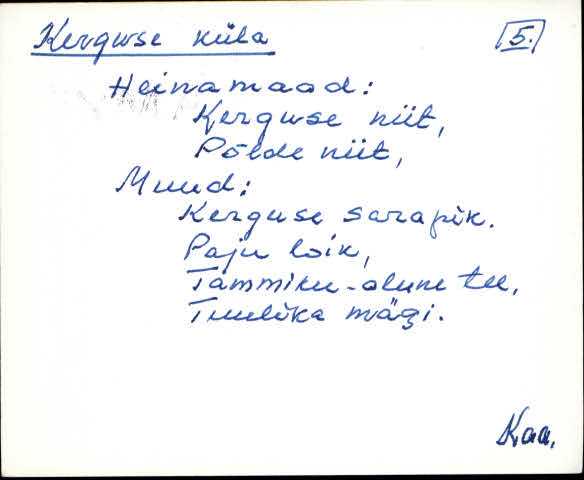 Kerguse küla
5.
Heinamaad:
Kerguse niit,
Põlde niit,
Muud:
Kerguse sarapik.
Paju loik,
Tammiku-alune tee,
Tuulika mägi.
Kaa.